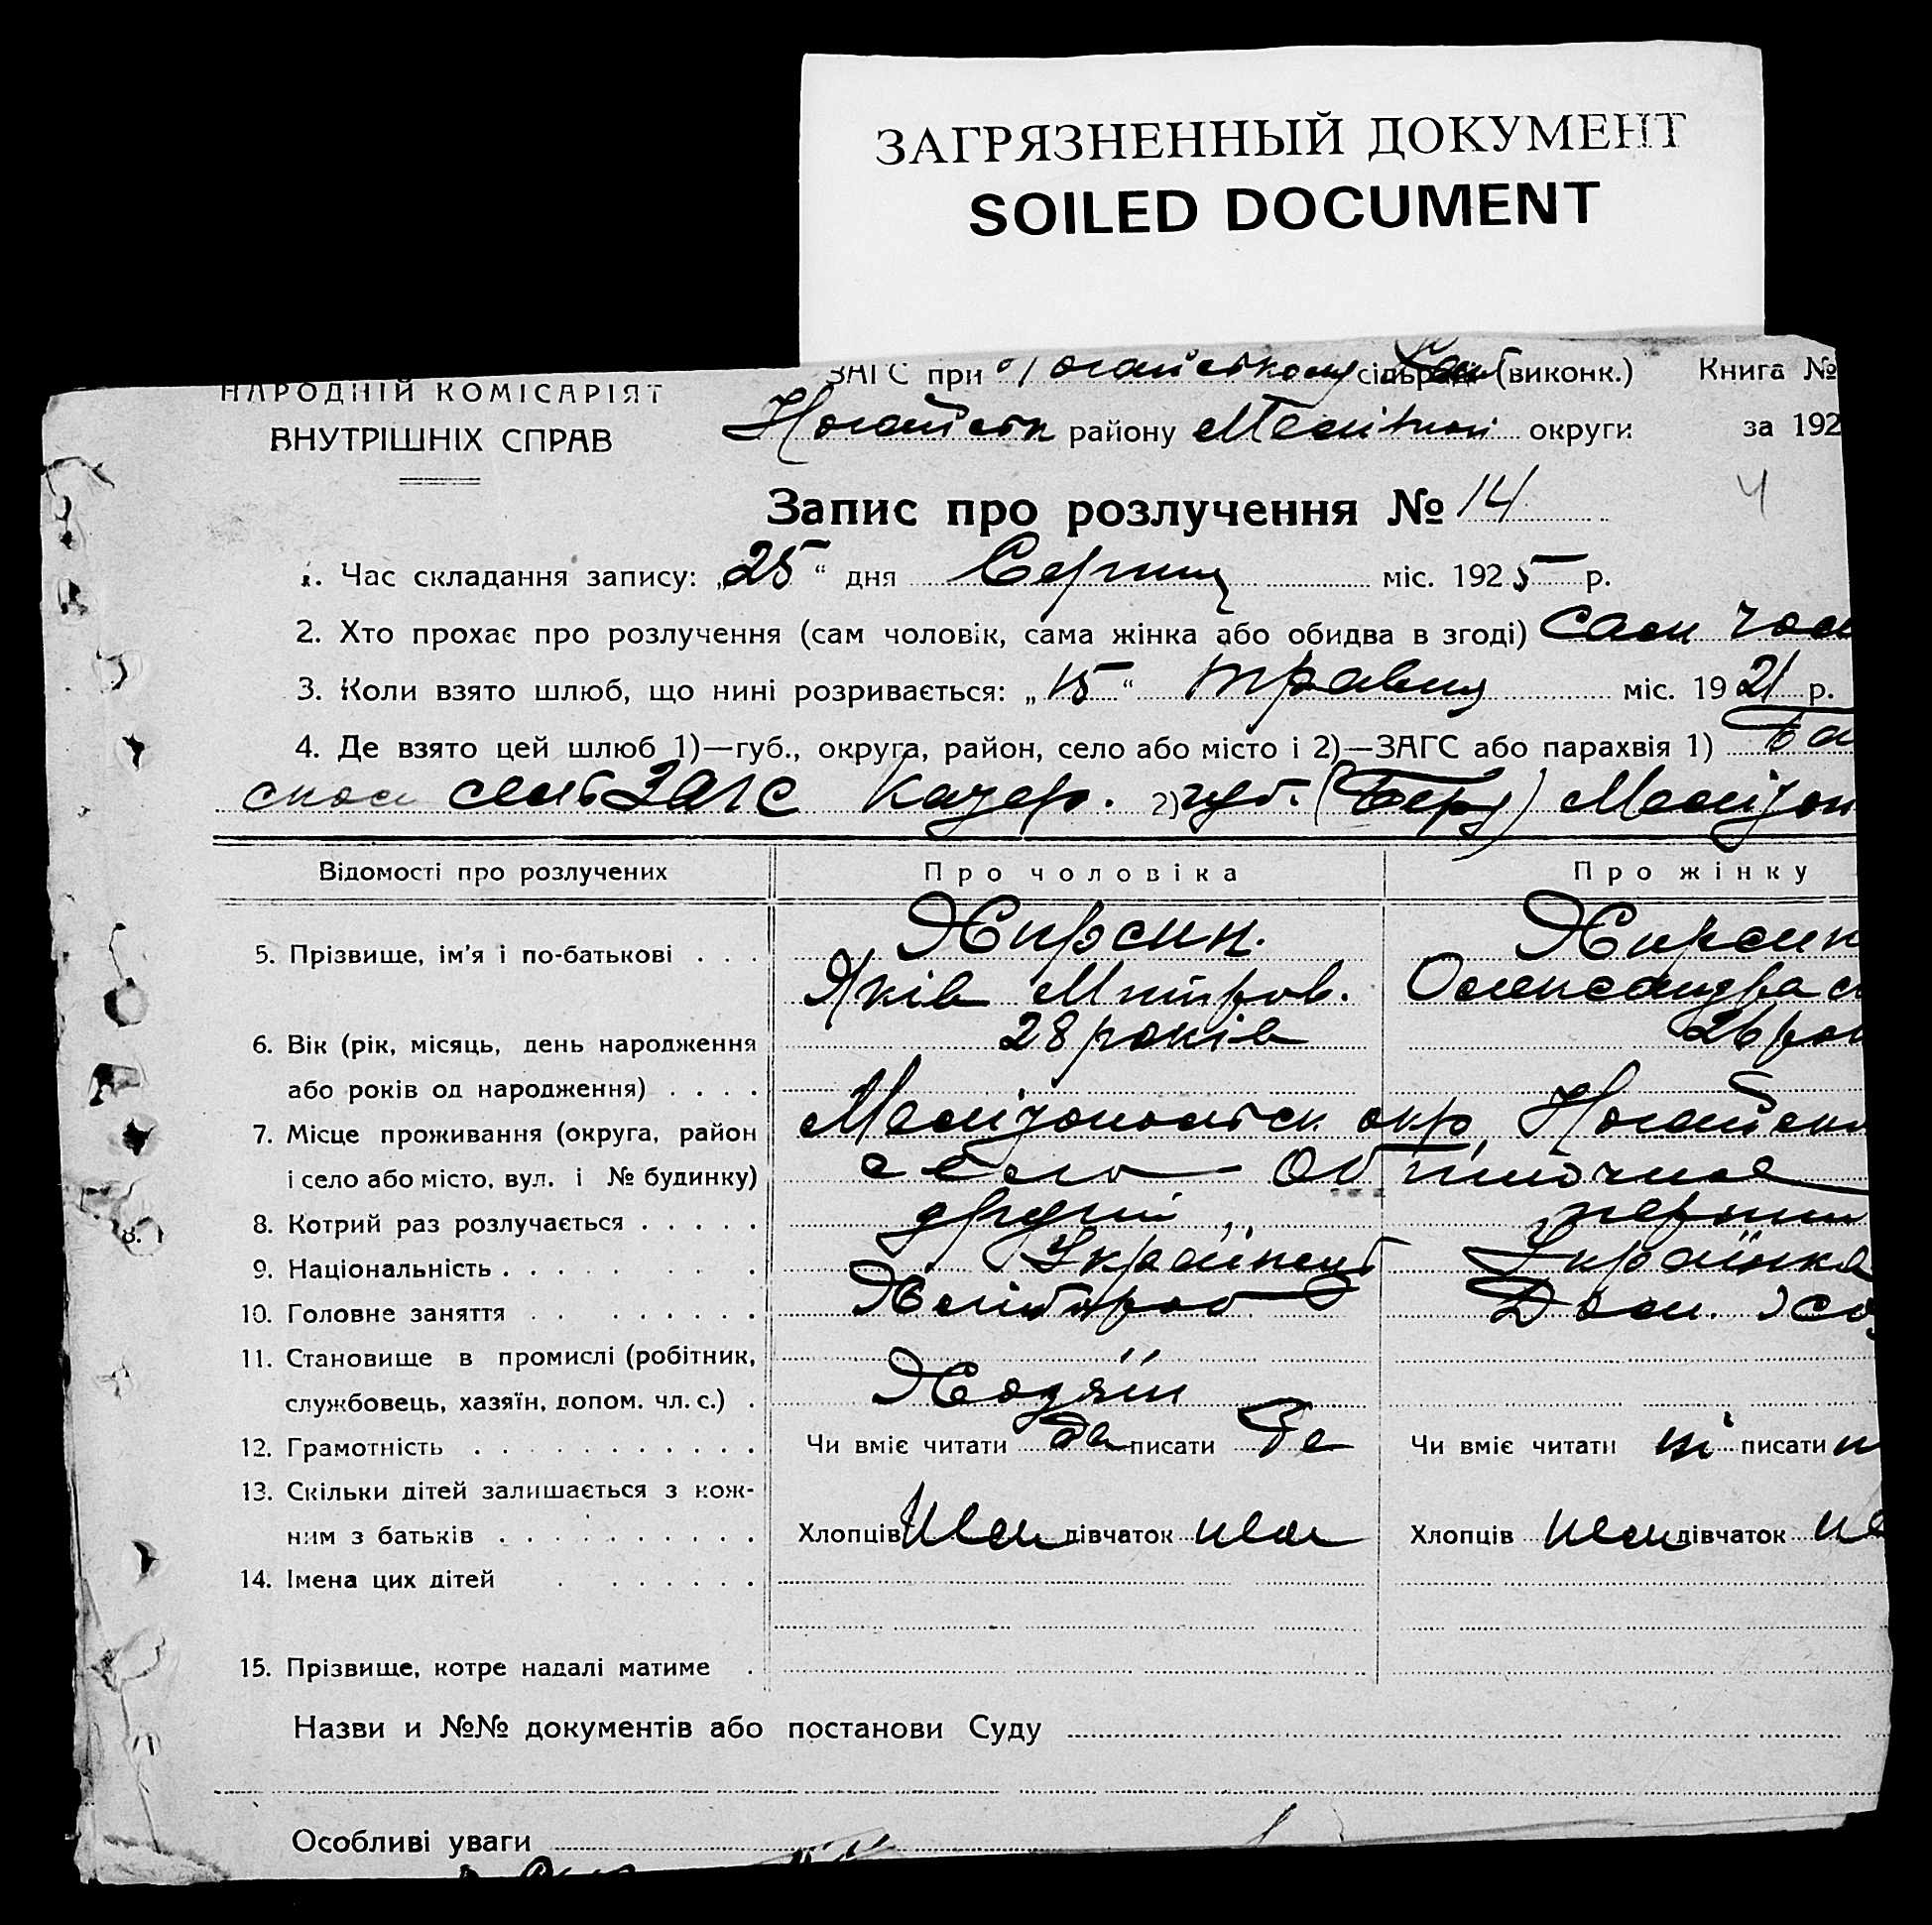 ЗАГРЯЗНЕННЫЙ ДОКУМЕНТ
SOILED DOCUMENT
НАРОДНІЙ КОМІСАРІЯТ
ВНУТРІШНІХ СПРАВ
ЗАГС при Ногайському (виконк.) Книга №
Ногайськ району округи за 192
Запис про розлучення № 14 4
1. Час складання запису: „25“ дня Серпня міс. 1925 р.
2. Хто прохає про розлучення (сам чоловік, сама жінка або обидва в згоді) Сам чол
3. Коли взято шлюб, що нині розривається: „15“ травня міс. 1921 р.
4. Де взято цей шлюб 1)—губ., округа, район, село або місто і 2)—ЗАГС або парахвія 1)
ЗАГС 2) губ.
Відомості про розлучених Про чоловіка Про жінку
5. Прізвище, ім’я і по-батькові . . . Хирсин. Хирсин
Яків Митров. Олександра
6. Вік (рік, місяць, день народження 28 років 26 рок
або років од народження) . . . .
7. Місце проживання (округа, район Мелітопольськ. окр. Ногайськ
і село або місто, вул. і № будинку) село Обіточное
8. Котрий раз розлучається . . . . . другий перший
9. Національність . . . . . . Українець Українка
10. Головне заняття . . . . . . . Хлібороб Дом.
11. Становище в промислі (робітник,
службовець, хазяїн, допом. чл. с.) . Хазяїн
12. Грамотність . . . . . . . . . . . Чи вміє читати да писати да Чи вміє читати ні писати н
13. Скільки дітей залишається з кож-
ним з батьків . . . . . . . . . . Хлопців нем дівчаток нем Хлопців нем дівчаток не
14. Імена цих дітей . . . . . . .
15. Прізвище, котре надалі матиме .
Назви и №№ документів або постанови Суду
Особливі уваги